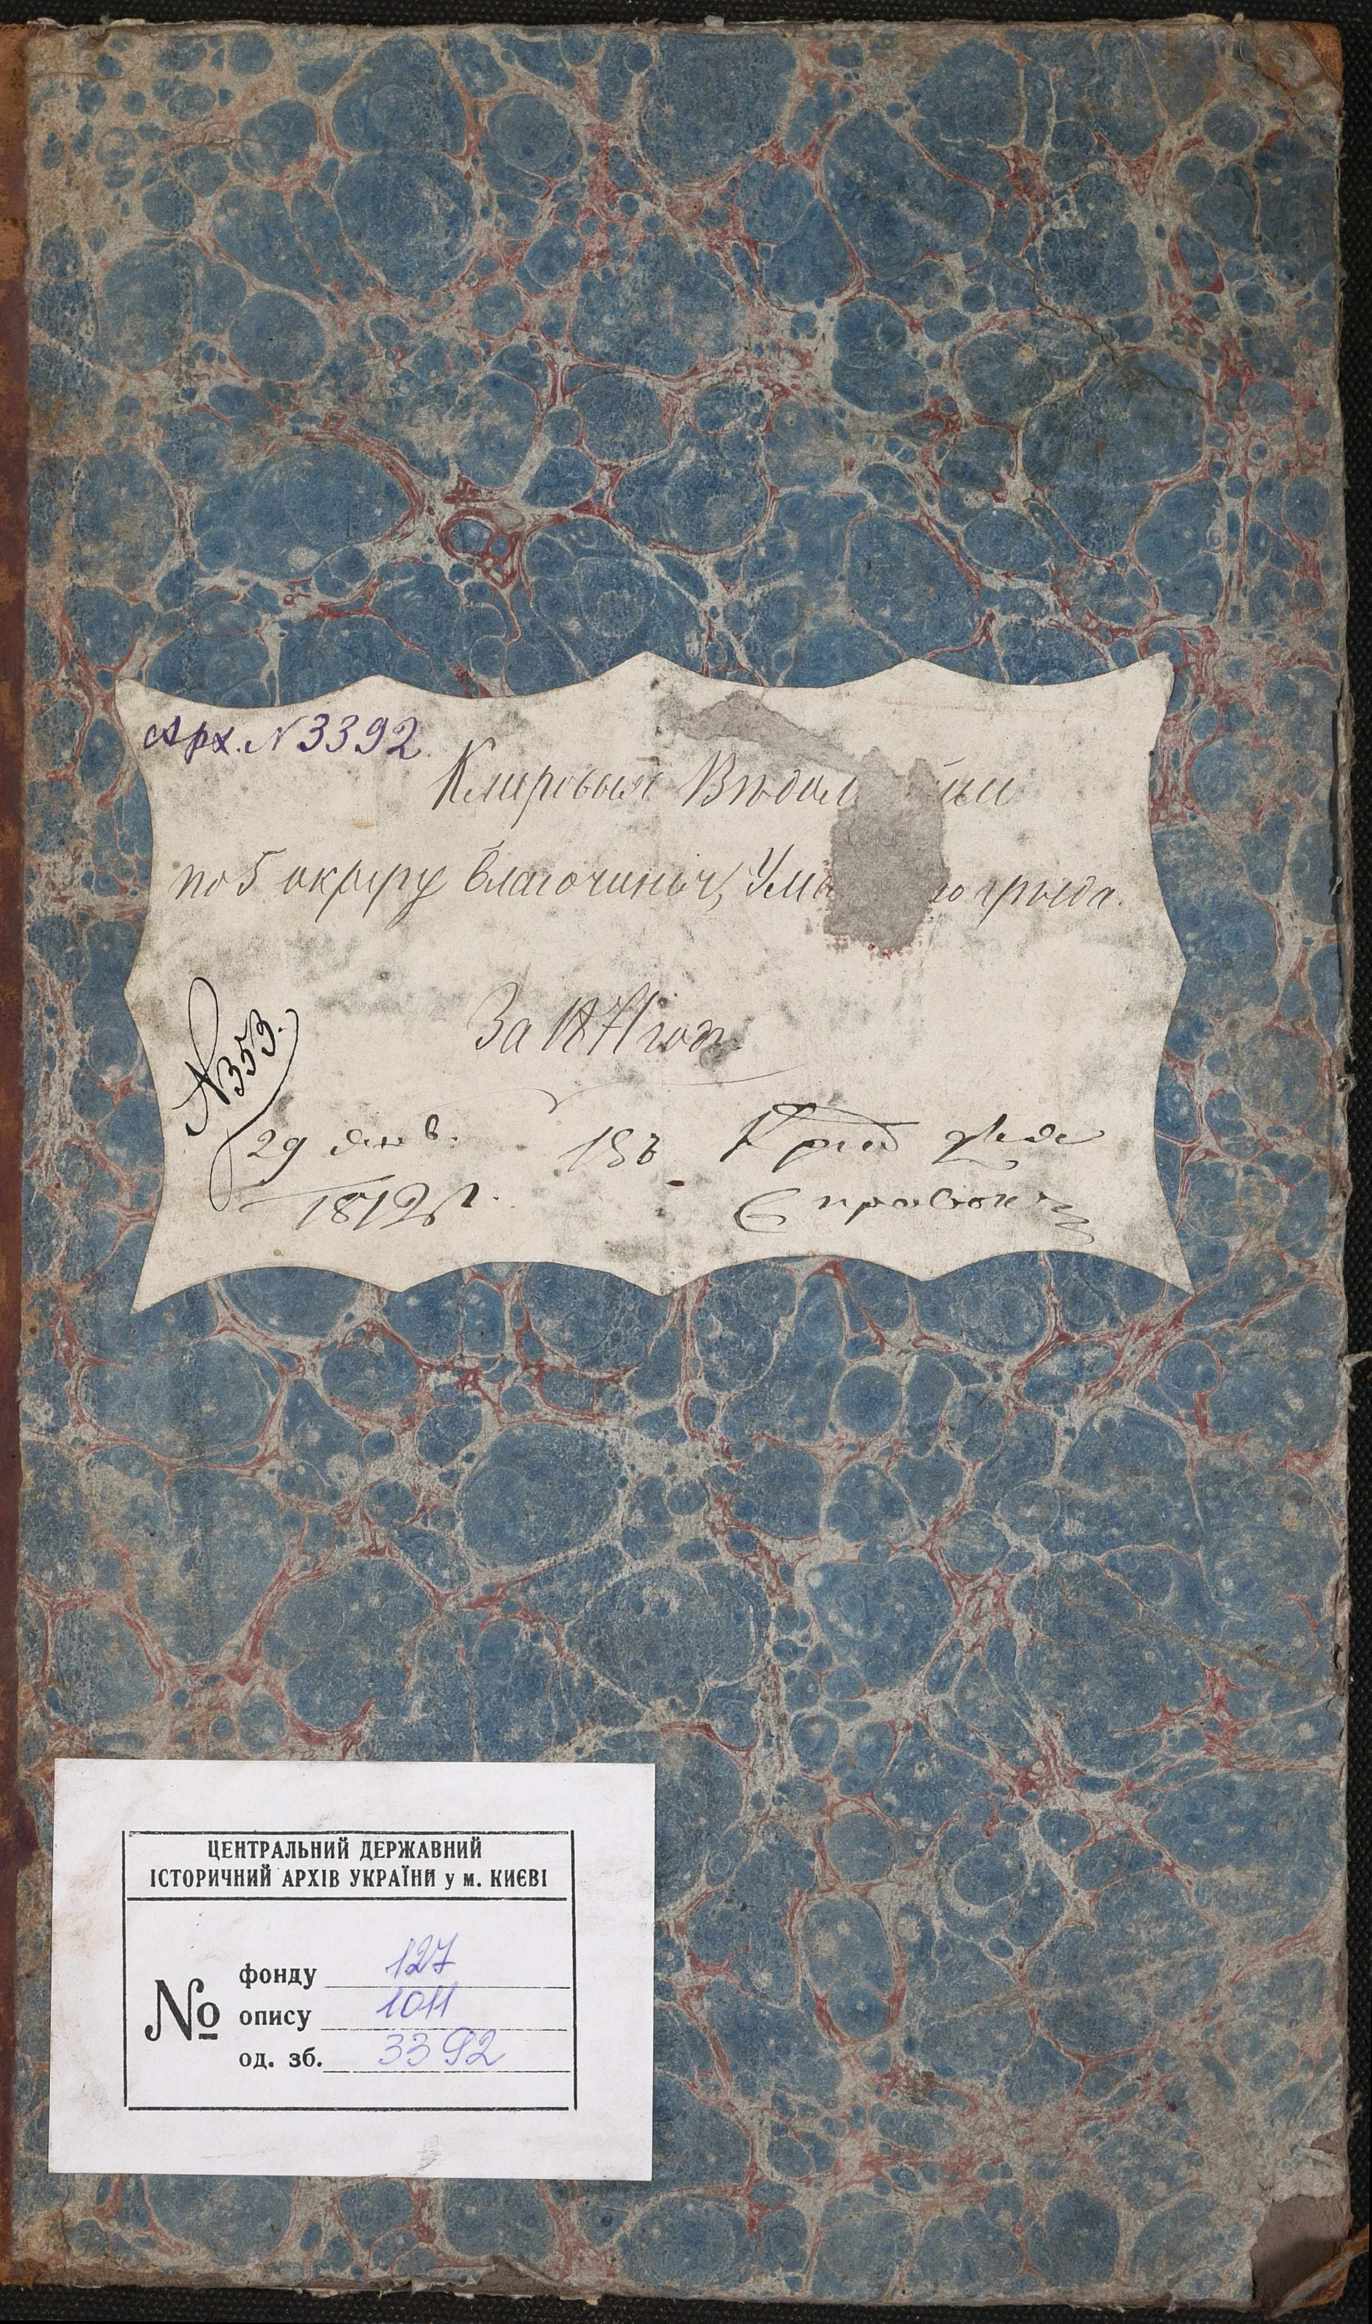 Арх. № 3392.
Клировыя Вѣдом ныи
по 5 округу благочинья, Ума го уѣзда.
За 1871 годъ.
№ 353.
29 янв.
1872 г.
Къ дѣлу для
Справокъ
ЦЕНТРАЛЬНИЙ ДЕРЖАВНИЙ
ІСТОРИЧНИЙ АРХІВ УКРАЇНИ у м. КИЄВІ
№
фонду 127
опису 1011
од. зб. 3392